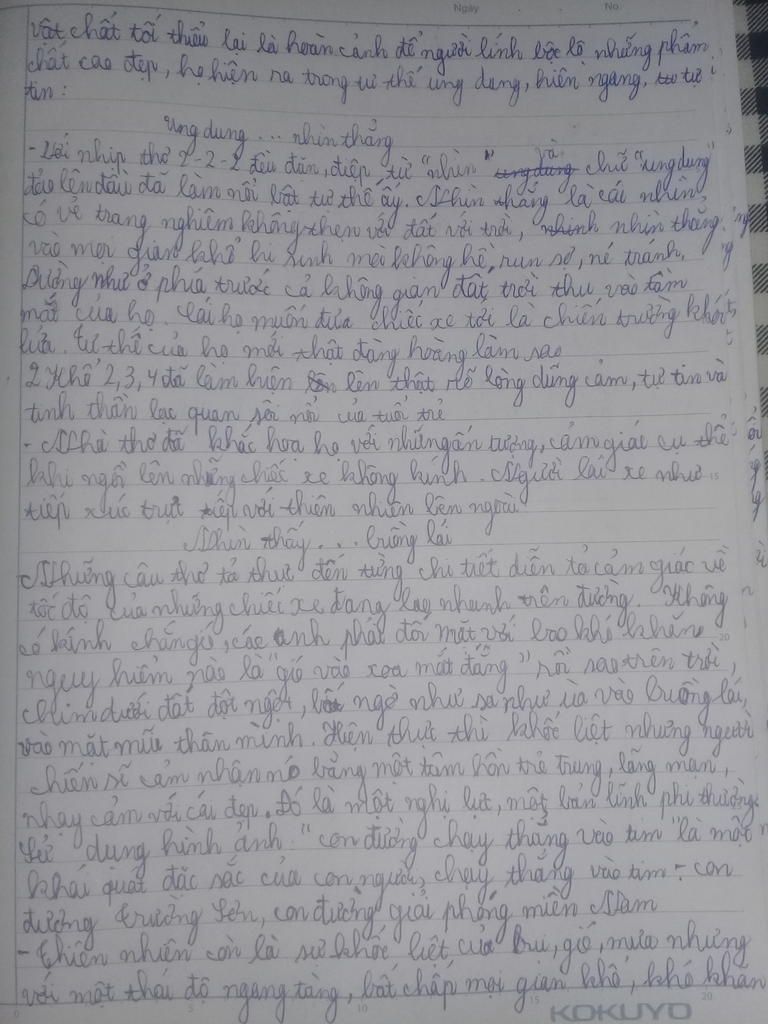 Ngày No.
vật chất tối thiểu lại là hoàn cảnh để người lính bộc lộ những phẩm
chất cao đẹp, họ hiện ra trong tư thế ung dung, hiên ngang, tự
tin:
Ung dung ... nhìn thẳng
- Với nhịp thơ 2-2-2 đều đặn, điệp từ "nhìn" và chữ "ung dung"
đảo lên đầu đã làm nổi bật tư thế ấy. Nhìn thẳng là cái nhìn
có vẻ trang nghiêm không thẹn với đất với trời, nhìn thẳng
vào mọi gian khổ hi sinh mà không hề run sợ, né tránh.
Dường như ở phía trước cả không gian đất trời thu vào tầm
mắt của họ. Cái họ muốn đưa chiếc xe tới là chiến trường khói
lửa. Tư thế của họ mới thật đàng hoàng làm sao
2 Khổ 2,3,4 đã làm hiện lên thật rõ lòng dũng cảm, tự tin và
tinh thần lạc quan sôi nổi của tuổi trẻ
- Nhà thơ đã khắc họa họ với những ấn tượng, cảm giác cụ thể
khi ngồi lên những chiếc xe không kính. Người lái xe như
tiếp xúc trực tiếp với thiên nhiên bên ngoài
Nhìn thấy ... buồng lái
Những câu thơ tả thực đến từng chi tiết diễn tả cảm giác về
tốc độ của những chiếc xe đang lao nhanh trên đường. Không
có kính chắn gió, các anh phải đối mặt với bao khó khăn
nguy hiểm nào là "gió vào xoa mắt đắng" rồi sao trên trời,
chim dưới đất đột ngột, bất ngờ như sa như ùa vào buồng lái,
vào mặt mũi thân mình. Hiện thực thì khốc liệt nhưng người
chiến sĩ cảm nhận nó bằng một tâm hồn trẻ trung, lãng mạn,
nhạy cảm với cái đẹp. Đó là một nghị lực, một bản lĩnh phi thường
Sử dụng hình ảnh "con đường chạy thẳng vào tim" là một
khái quát đặc sắc của con người, chạy thẳng vào tim - con
đường Trường Sơn, con đường giải phóng miền Nam
- Thiên nhiên còn là sự khốc liệt của bụi, gió, mưa nhưng
với một thái độ ngang tàng, bất chấp mọi gian khổ, khó khăn
KOKUYO